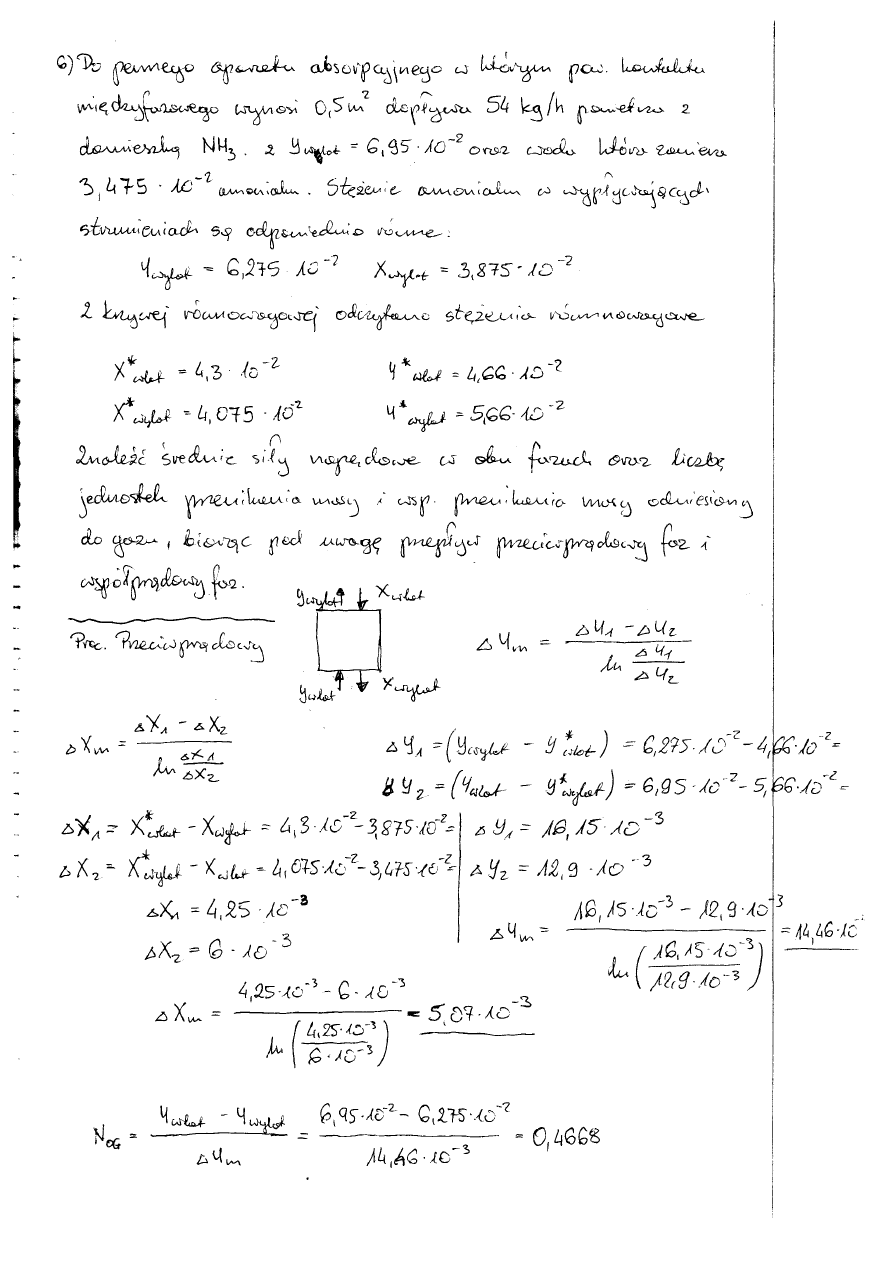 6) Do pewnego aparatu absorpcyjnego w którym pow. kontaktu
międzyfazowego wynosi 0,5m² dopływa 54 kg/h powietrza z
domieszką NH₃. z Ywlot = 6,95·10⁻² oraz woda która zawiera
3,475·10⁻² amoniaku. Stężenie amoniaku w wypływających
strumieniach są odpowiednio równe:
Ywylot = 6,275·10⁻² Xwylot = 3,875·10⁻²
Z krzywej równowagowej odczytano stężenia równowagowe
X*wlot = 4,3·10⁻² Y*wlot = 4,66·10⁻²
X*wylot = 4,075·10² Y*wylot = 5,66·10⁻²
Znaleźć średnie siły napędowe w obu fazach oraz liczbę
jednostek przenikania masy i wsp. przenikania masy odniesiony
do gazu, biorąc pod uwagę przepływ przeciwprądowy faz i
współprądowy faz.
Ywylot Xwlot
Proc. Przeciwprądowy
Ywlot Xwylot
ΔYm = (ΔY1 - ΔY2) / (ln ΔY1/ΔY2)
ΔXm = (ΔX1 - ΔX2) / (ln ΔX1/ΔX2)
ΔY1 = (Ywylot - Y*wlot) = 6,275·10⁻² - 4,66·10⁻² =
ΔY2 = (Ywlot - Y*wylot) = 6,95·10⁻² - 5,66·10⁻² =
ΔX1 = X*wlot - Xwylot = 4,3·10⁻² - 3,875·10⁻² = ΔY1 = 16,15·10⁻³
ΔX2 = X*wylot - Xwlot = 4,075·10⁻² - 3,475·10⁻² = ΔY2 = 12,9·10⁻³
ΔX1 = 4,25·10⁻³
ΔX2 = 6·10⁻³
ΔYm = (16,15·10⁻³ - 12,9·10⁻³) / ln(16,15·10⁻³ / 12,9·10⁻³) = 14,46·10
ΔXm = (4,25·10⁻³ - 6·10⁻³) / ln(4,25·10⁻³ / 6·10⁻³) = 5,07·10⁻³
NOG = (Ywlot - Ywylot) / ΔYm = (6,95·10⁻² - 6,275·10⁻²) / 14,46·10⁻³ = 0,4668